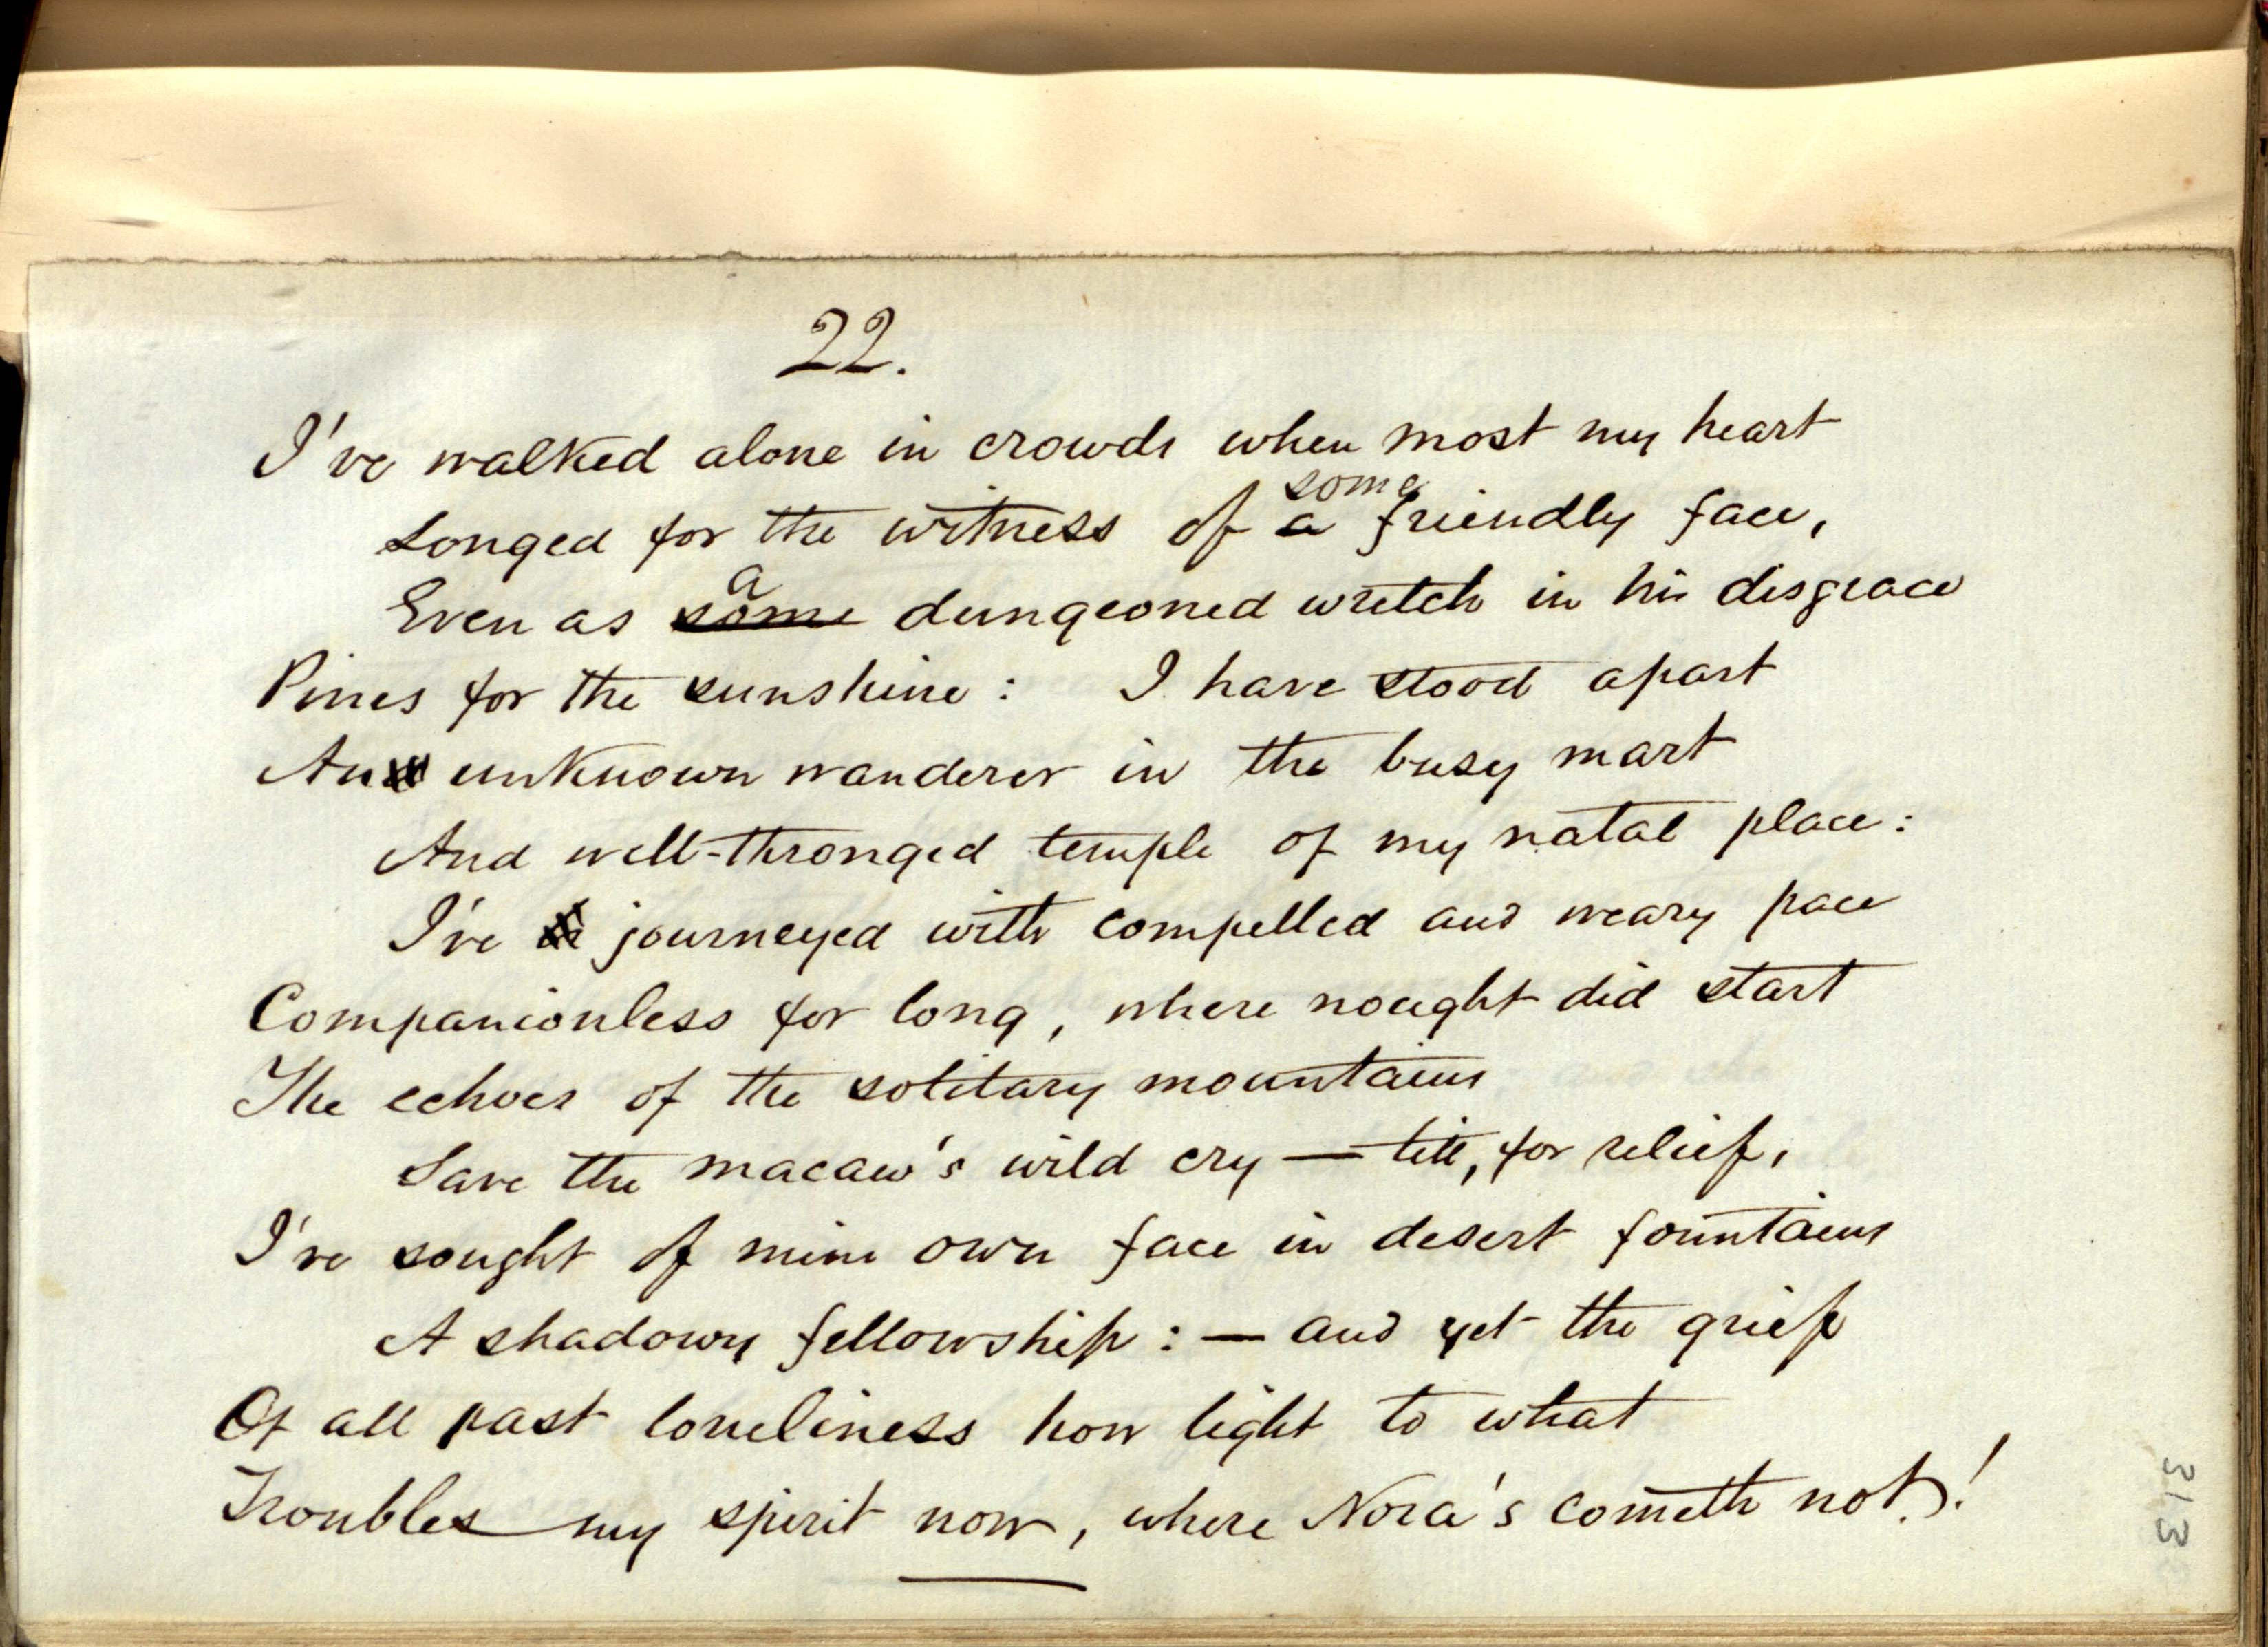 22.
I've walked alone in crowds when most my heart
some
Longed for the witness of a friendly face,
a
Even as some dungeoned wretch in his disgrace
Pines for the sunshine: I have stood apart
An unknown wanderer in the busy mart
And well-thronged temple of my natal place:
I've journeyed with compelled and weary pace
Companionless for long, where nought did start
The echoes of the solitary mountains
Save the macaw's wild cry — till, for relief,
I've sought of mine own face in desert fountains
A shadowy fellowship: — and yet the grief
Of all past loneliness how light to what
Troubles my spirit now, where Nora's cometh not!
313